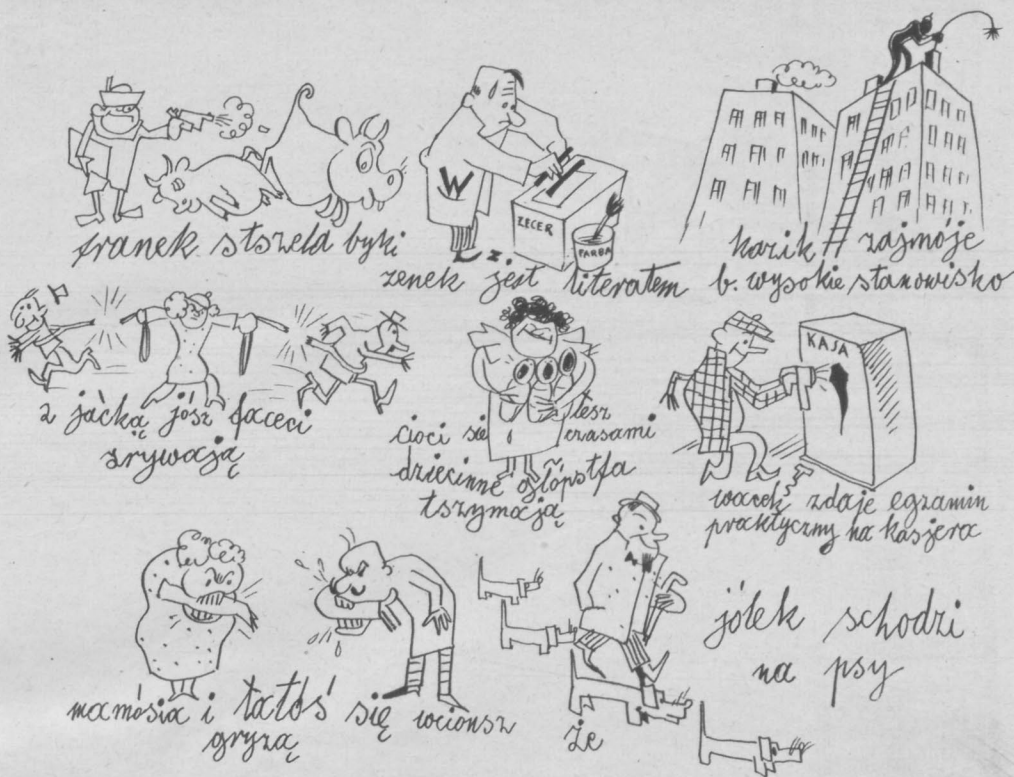 franek stszela byki
W
ZECER
FARBA
zenek jest literatem
kazik zajmóje
b. wysokie stanowisko
z jaćką jósz faceci
zrywają
się
cioci się tesz czasami
dziecinne głópstfa
tszymają
KASA
wacek zdaje egzamin
praktyczny na kasjera
mamósia i tatóś się wcionsz
gryzą
że
jólek schodzi
na psy